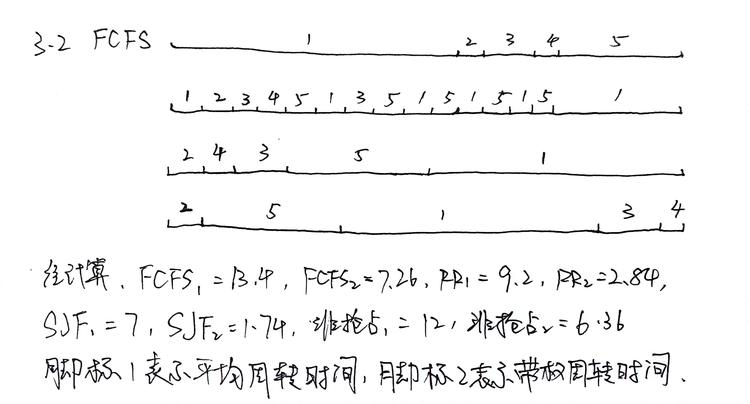 3-2 FCFS 1 2 3 4 5
1 2 3 4 5 1 3 5 1 5 1 5 1 5 1
2 4 3 5 1
2 5 1 3 4
经计算、FCFS₁=13.4, FCFS₂=7.26, RR₁=9.2, RR₂=2.84,
SJF₁=7, SJF₂=1.74, 非抢占₁=12, 非抢占₂=6.36
脚标1表示平均周转时间,脚标2表示带权周转时间.